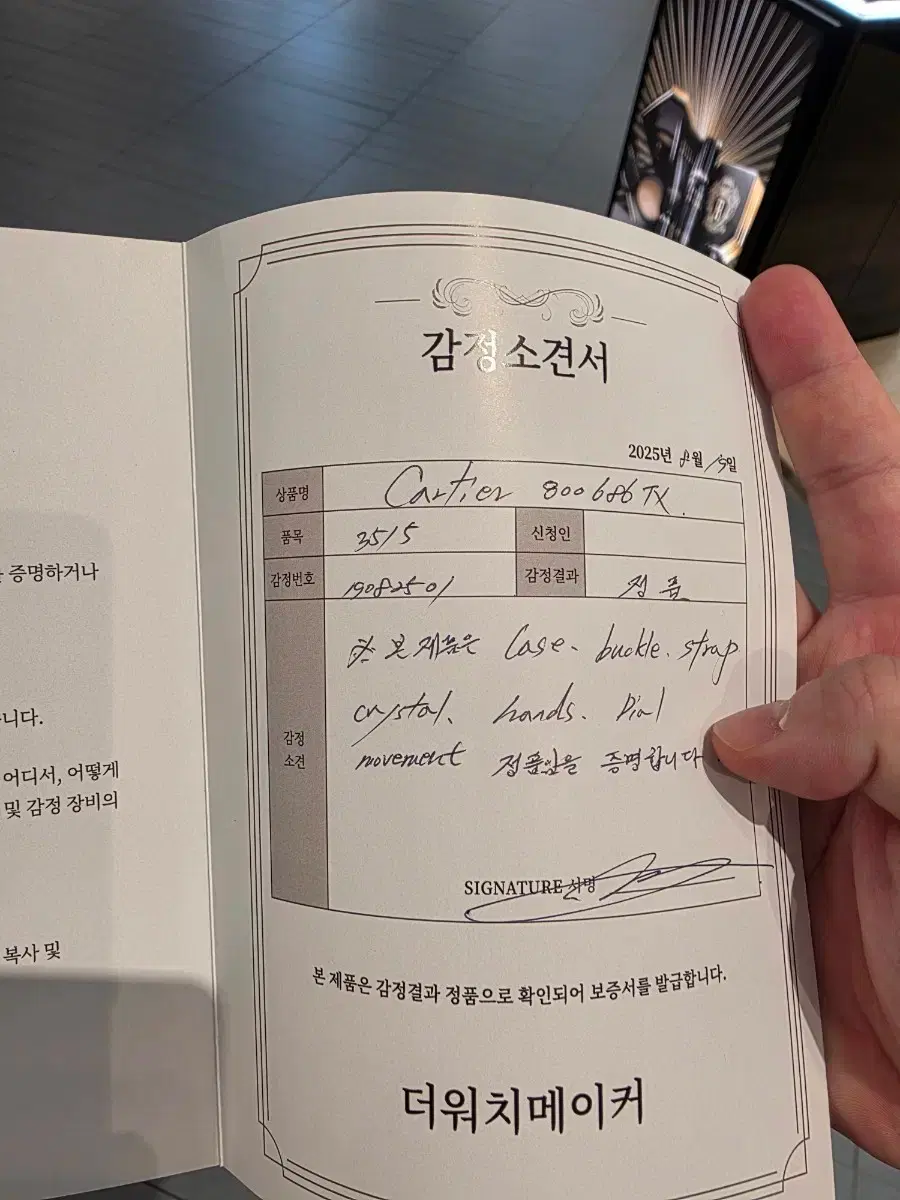 증명하거나
니다.
어디서, 어떻게
및 감정 장비의
복사 및
감정소견서
2025년 8월 15일
상품명 Cartier 800686TX.
품목 3515 신청인
감정번호 19082501 감정결과 정품
감정 소견
※ 본 제품은 Case. buckle. strap
crystal. hands. Dial
movement 정품임을 증명합니다
SIGNATURE 서명
본 제품은 감정결과 정품으로 확인되어 보증서를 발급합니다.
더워치메이커